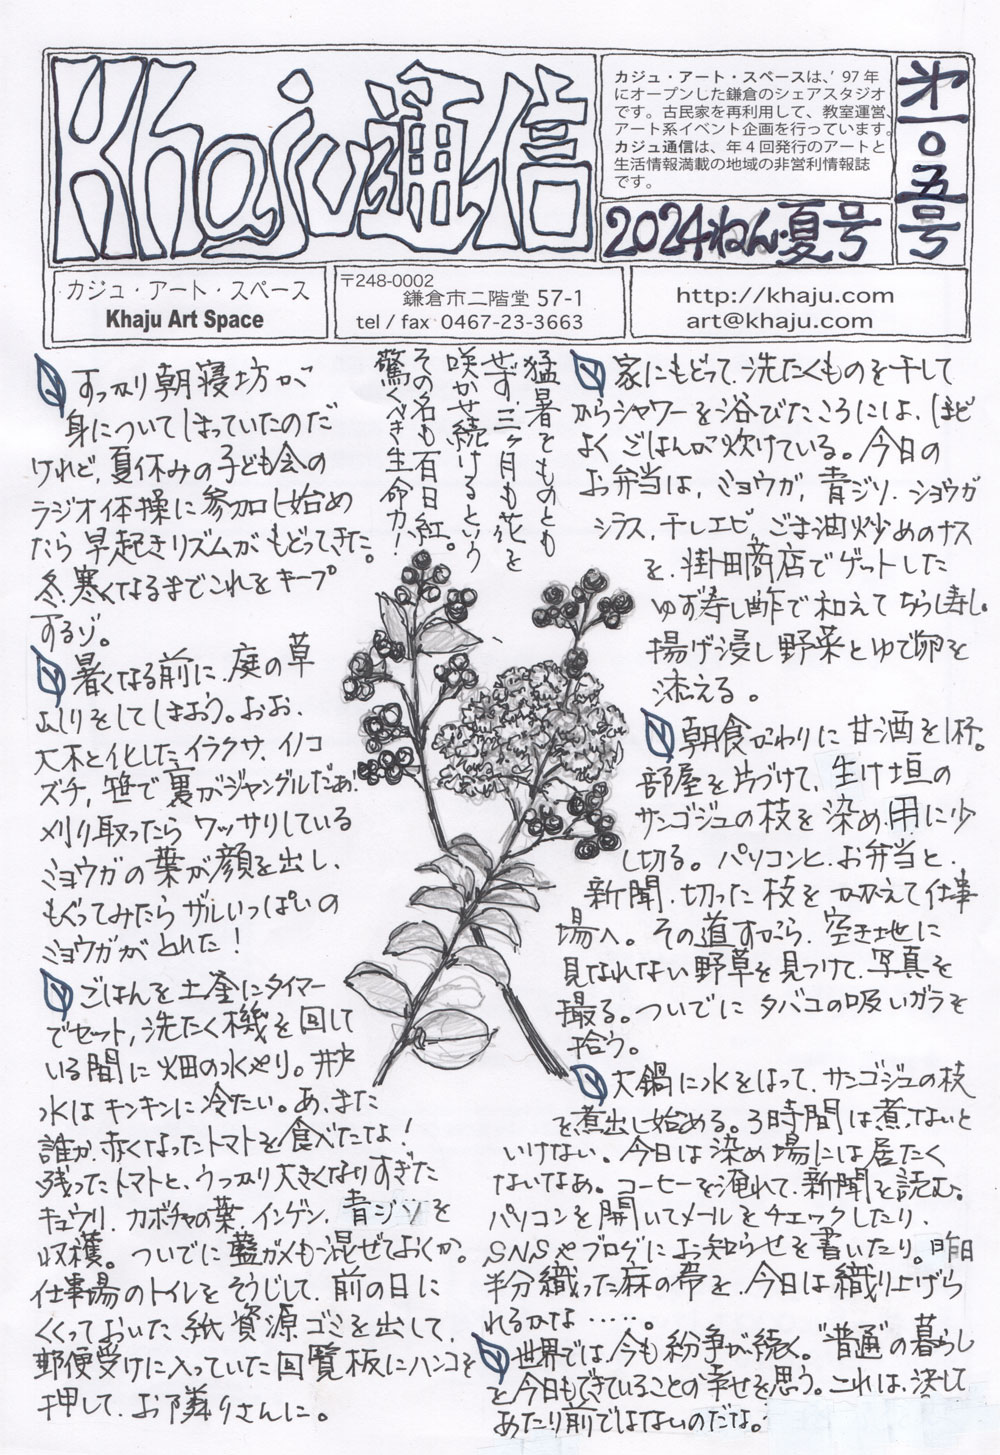 Khaju通信
カジュ・アート・スペースは、'97年
にオープンした鎌倉のシェアスタジオ
です。古民家を再利用して、教室運営、
アート系イベント企画を行っています。
カジュ通信は、年4回発行のアートと
生活情報満載の地域の非営利情報誌
です。
2024ねん・夏号
第一〇五号
カジュ・アート・スペース
Khaju Art Space
〒248-0002
鎌倉市二階堂 57-1
tel / fax 0467-23-3663
http://khaju.com
art@khaju.com
すっかり朝寝坊が
身についてしまっていたのだ
けれど、夏休みの子ども会の
ラジオ体操に参加し始め
たら早起きリズムがもどってきた。
冬、寒くなるまでこれをキープ
するゾ。
暑くなる前に、庭の草
むしりをしてしまおう。おお、
大木と化したイラクサ、イノコ
ズチ、笹で裏がジャングルだぁ。
刈り取ったらワッサリしている
ミョウガの葉が顔を出し、
もぐってみたらザルいっぱいの
ミョウガがとれた!
ごはんを土釜にタイマー
でセット、洗たく機を回して
いる間に畑の水やり。井戸
水はキンキンに冷たい。あ、また
誰か、赤くなったトマトを食べたな!
残ったトマトと、うっかり大きくなりすぎた
キュウリ、カボチャの葉、インゲン、青ジソを
収穫。ついでに藍ガメも混ぜておくか。
仕事場のトイレをそうじして、前の日に
くくっておいた紙資源ゴミを出して、
郵便受けに入っていた回覧板にハンコを
押して、お隣りさんに。
猛暑をものとも
せず三ヶ月も花を
咲かせ続けるという
その名も百日紅。
驚くべき生命力!
家にもどって、洗たくものを干して
からシャワーを浴びたころには、ほど
よくごはんが炊けている。今日の
お弁当は、ミョウガ、青ジソ、ショウガ
シラス、干しエビ、ごま油炒めのナス
を、掛田商店でゲットした
ゆず寿し酢で和えてちらし寿し。
揚げ浸し野菜とゆで卵を
添える。
朝食がわりに甘酒を1杯。
部屋を片づけて、生け垣の
サンゴジュの枝を染め用に少
し切る。パソコンと、お弁当と、
新聞、切った枝をかかえて仕事
場へ。その道すがら、空き地に
見なれない野草を見つけて、写真を
撮る。ついでにタバコの吸いガラを
拾う。
大鍋に水をはって、サンゴジュの枝
を煮出し始める。3時間は煮ないと
いけない。今日は染め場には居たく
ないなあ。コーヒーを淹れて、新聞を読む。
パソコンを開いてメールをチェックしたり、
SNSやブログにお知らせを書いたり。昨日
半分織った麻の帯を、今日は織り上げら
れるかな……。
世界では、今も紛争が続く。"普通"の暮らし
を今日もできていることの幸せを思う。これは、決して
あたり前ではないのだな。